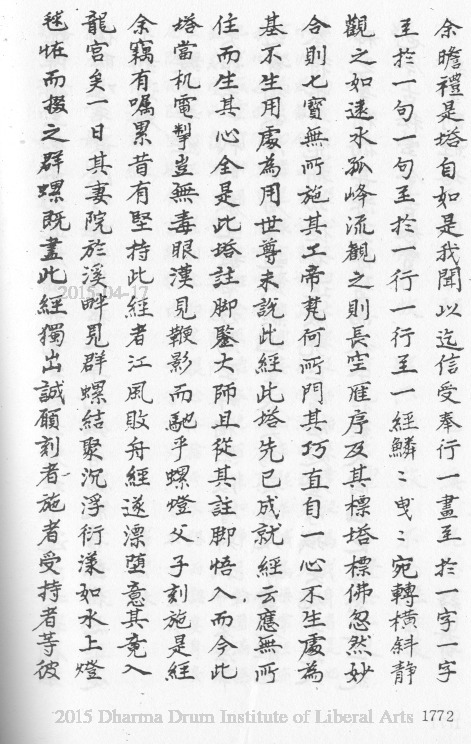 余瞻禮是塔自如是我聞以迄信受奉行一畫至於一字一字
至於一句一句至於一行一行至一經鱗〻曳〻宛轉橫斜靜
觀之如遠水孤峰流觀之則長空雁序及其標塔標佛忽然妙
合則七寶無所施其工帝梵何所鬥其巧直自一心不生處為
基不生用處為用世尊未說此經此塔先已成就經云應無所
住而生其心全是此塔註脚鑒大師且從其註脚悟入而今此
塔當机電掣豈無毒眼漢見鞭影而馳乎螺燈父子刻施是經
余竊有囑累昔有堅持此經者江風敗舟經遂漂墮意其竟入
龍宮矣一日其妻院於溪畔見群螺結聚沉浮衍漾如水上燈
毬怪而掇之群螺既盡此經獨出誠願刻者施者受持者等彼
2015-04-17
2015 Dharma Drum Institute of Liberal Arts
1772